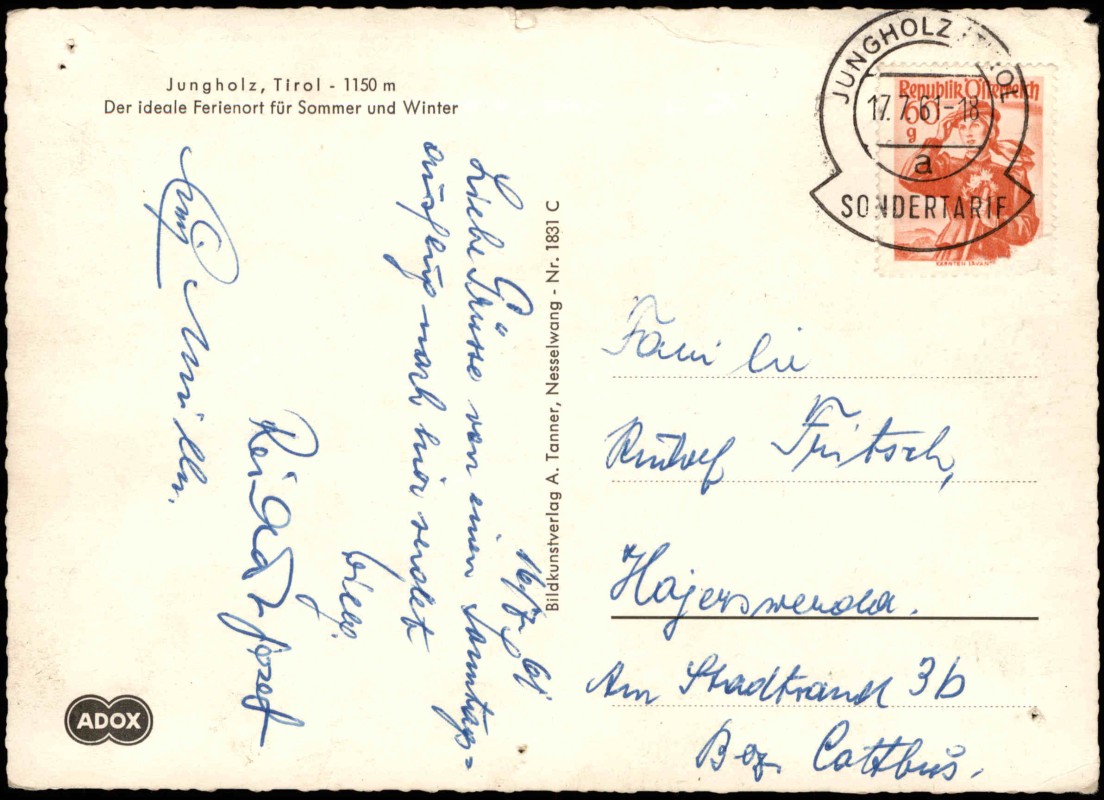 Jungholz, Tirol - 1150 m
Der ideale Ferienort für Sommer und Winter
JUNGHOLZ TIROL
17.7.61-18
a
SONDERTARIF
Republik Österreich
60
g
16/7. 61
Liebe Grüsse von einem Samstags=
ausflug nach hier sendet
Müller.
Josef
Bildkunstverlag A. Tanner, Nesselwang - Nr. 1831 C
Familie
Rudolf Fritsch,
Hojerswerda.
Am Stadtrand 3b
Bez. Cottbus.
ADOX